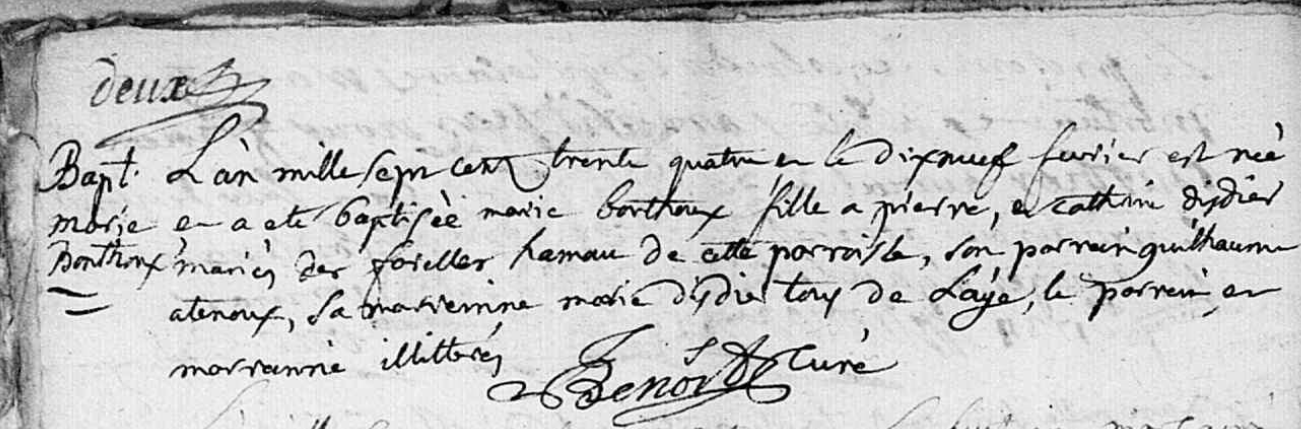 deux
Bapt. L'an mille sept cent trente quatre en le dixneuf fevrier est née
marie en a eté baptisèe marie bonthoux fille a pierre, e catherine dydier
Bonthoux mariés des foreстes hamau de cette parroisse, son parrein guilhaume
atenoux, sa marreinne marie dydier tous de Laye, le parrein en
marrainne illitterés
J Benoit Curé